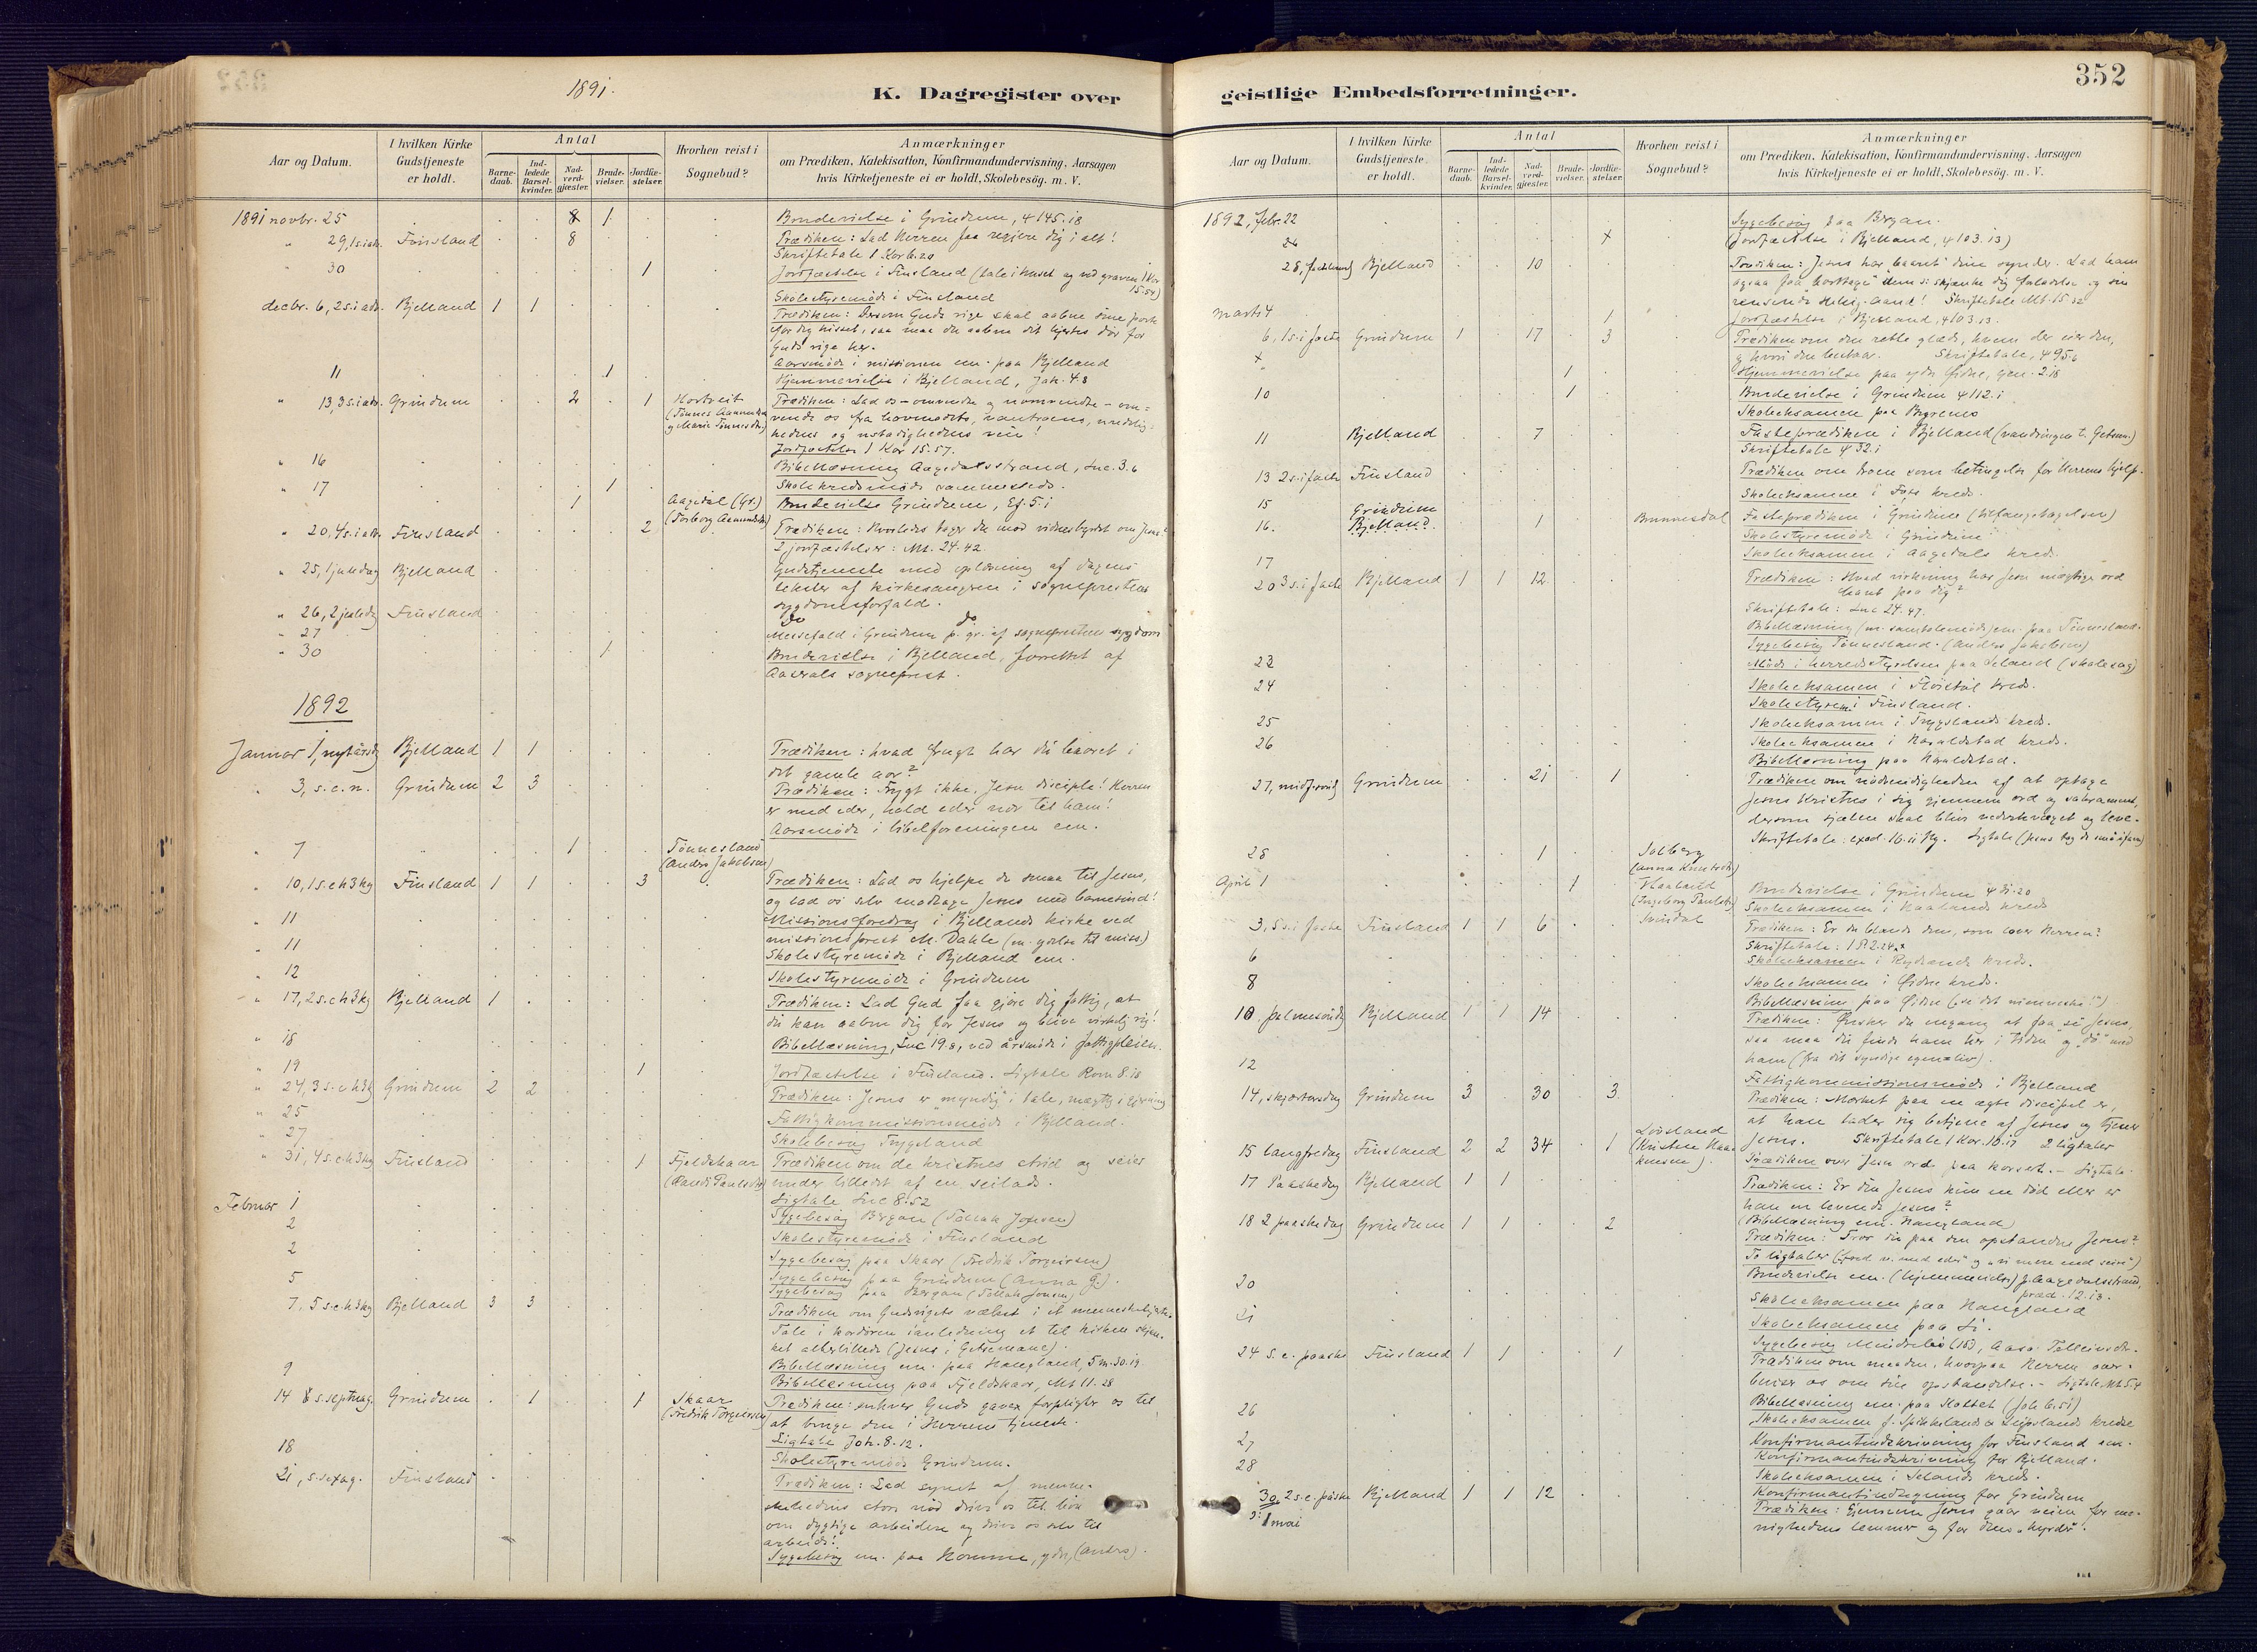 1891.
K. Dagregister over
Aar og Datum.
I hvilken Kirke Gudstjeneste er holdt.
Antal
Barnedaab.
Indledede Barselkvinder.
Nadverdgjæster.
Brudevielser.
Jordfæstelser.
Hvorhen reist i Sognebud?
Anmærkninger
om Prædiken, Katekisation, Konfirmandundervisning, Aarsagen
hvis Kirketjeneste ei er holdt, Skolebesög. m. V.
1891 novbr. 25 8 1 Brudevielse i Grindum, ψ 145.18
" 29, 1 s.i adv. Finsland 8 Prædiken: Lad Herren faa regjere dig i alt!
Skriftetale 1 Kor 6.20
" 30 1 Jordfæstelse i Finsland (tale i huset og ved graven 1 Kor 15.54)
Skolestyremöde i Finsland
decbr. 6, 2 s.i adv. Bjelland 1 1 Prædiken: Dersom Guds rige skal aabne sine porte
for dig hisset, saa maa du aabne dit hjertes dör for
Guds rige her.
Aarsmöde i missionen em. paa Bjelland
11 1 Hjemmevielse i Bjelland, Jak. 4.8
" 13, 3 s.i adv. Grindum 2 1 Hortveit Prædiken: Lad os - omvendte og uomvendte - om=
vende os fra hovmodets, vantroens,
hedens og ustadighedens vei!
Jordfæstelse 1 Kor 15.57.
" 16 Bibellæsning Aagedalsstrand, Luc. 3.6
" 17 1 Skolekredsmöde sammesteds.
1 Aagedal (Gr.) Brudevielse Grindum, Ef. 5.1
(Torborg Aamundsdtr)
" 20, 4 s.i adv. Finsland 2 Prædiken: Hvorledes tager du mod vidnesbyrdet om Jesus?
2 jordfæstelser: Mt. 24.42.
" 25, 1 juledag Bjelland Gudstjeneste med oplæsning af dagens
tekster af kirkesangeren i sogneprestens
sygdomsforfald.
" 26, 2 juledag Finsland Do Do
" 27 Messefald i Grindum p. gr. af sogneprestens sygdom
" 30 1 Brudevielse i Bjelland, forrettet af
Aaserals sogneprest.
1892
Januar 1, nytårsdg Bjelland 1 1 Prædiken: hvad frugt har du baaret i
det gamle aar?
" 3, s.e.n. Grindum 2 3 Prædiken: Frygt ikke, Jesu disciple! Herren
er med eder, hold eder nær til ham!
Aarsmöde i bibelforeningen em.
" 7 1 Tönnesland
(Anders Jakobsen)
" 10, 1 s.e.h3kg Finsland 1 1 3 Prædiken: Lad os hjelpe de smaa til Jesus,
og lad os selv modtage Jesus med barnesind!
" 11 Missionsforedrag i Bjellands kirke ved
missionsprest M. Dahle
" 11 Skolestyremöde i Bjelland em.
" 12 Skolestyremöde i Grindum
" 17, 2 s.e.h3kg Bjelland 1 Prædiken: Lad Gud faa gjöre dig fattig, at
du kan aabne dig for Jesus og blive virkelig rig!
" 18 Bibellæsning, Luc 19.8, ved årsmöde i fattigpleien.
" 19 1 Jordfæstelse i Finsland. Ligtale Rom 8.18
" 24, 3 s.e.h3k Grindum 2 2 Prædiken: Jesus er myndig i tale, mægtig i gjerning
" 25 Fattigkommissionsmöde i Bjelland.
" 27 Skolebesög Trygsland
" 31, 4 s.e.h3kg Finsland 1 Fjeldskaar Prædiken om de kristnes strid og seier
under billedet af en seilads.
Ligtale Luc 8.52
Februar 1 Sygebesög Bergan (Tollak Jonsen)
2 Skolestyremöde i Finsland
2 Sygebesög paa Skaar (Fredrik Torgeirsen)
5 Sygebesög paa Grindum (Anna G.).
Sygebesög paa Bergan (Tollak Jonsen)
7, 5 s.e.h3kg Bjelland 3 3 Prædiken om Gudsrigets vækst i et menneskehjerte.
Tale i kordören i anledning et til kirken skjæn-
ket alterbillede (Jesus i Getsemane).
Bibellæsning em. paa Haugland, 5 M. 30.19.
9 Bibellæsning paa Fjeldskaar, Mt 11.28
14 s. septuag. Grindum 1 1 Skaar Prædiken: enhver Guds gaver forpligter os til
(Fredrik Torgeirsen) at bruge den i Herrens tjeneste.
Ligtale Joh. 8.12.
18 Skolestyremöde Grindum.
21, s. sexag. Finsland Prædiken: Lad synet af menne-
skehedens store nöd drive os til bön
om dygtige arbeidere og drive os selv til
arbeide!
Sygebesög em. paa Homme, ydre, (Anders).
352
geistlige Embedsforretninger.
Aar og Datum.
I hvilken Kirke Gudstjeneste er holdt.
Antal
Barnedaab.
Indledede Barselkvinder.
Nadverdgjæster.
Brudevielser.
Jordfæstelser.
Hvorhen reist i Sognebud?
Anmærkninger
om Prædiken, Katekisation, Konfirmandundervisning, Aarsagen
hvis Kirketjeneste ei er holdt, Skolebesög. m. V.
1892, Febr. 22 Sygebesög paa Bergan.
24 x (Jordfæstelse i Bjelland, ψ 103.13)
28, fastelavn Bjelland 10 Prædiken: Jesus har baaret dine synder. Lad ham
ogsaa faa "borttage" dem ɔ: skjænke dig forladelse og sin
rensende Hellig-Aand! Skriftetale Mt. 15.32
marts 4 1 Jordfæstelse i Bjelland, ψ 103.13.
6, 1 s.i faste Grindum 1 17 3 Prædiken om den rette glæde, hvem der eier den,
og hvori den bestaar. Skriftetale, ψ 95.6
x 1 Hjemmevielse paa ydre Öidne, Gen. 2.18
10 1 Brudevielse i Grindum ψ 112.1
Skoleeksamen paa Bryrene
11 Bjelland 7 Fasteprædiken i Bjelland (vandringen t. Getsem.)
Skriftetale ψ 32.1
13 2 s.i faste Finsland Prædiken om troen som betingelse for Herrens hjelp.
15 Grindum Skoleeksamen i Foss kreds.
16. Bjelland. 1 Brunnesdal Fasteprædiken i Grindum (tilfangetagelsen)
Skolestyremöde i Grindum
17 Skoleeksamen i Aagedals kreds.
20 3 s.i faste Bjelland 1 1 12 Prædiken: Hvad virkning har Jesu mægtige ord
havt paa dig?
Skriftetale: Luc 24.47.
Bibellæsning (m. samtalemöde) em. paa Tönnesland.
Sygebesög Tönnesland. (Anders Jakobsen)
22 Möde i herredsstyrelsen paa Seland (skolesag)
24 Skoleeksamen i Höistöl kreds.
Skolestyrem. i Finsland.
25 Skoleeksamen i Trygslands kreds.
26 Skoleeksamen i Haraldstad kreds.
Bibellæsning paa Haraldstad.
27, midfasted Grindum 21 1 Prædiken om nödvendigheden af at optage
Jesus Kristus i sig gjennem ord og sakrament,
dersom sjælen skal blive vederkvæget og leve.
Skriftetale: exod. 16.
28 1 Solberg
(Anna Knutsdtr)
April 1 1 Brudevielse i Grindum ψ 31.20
Skoleeksamen i Haalands kreds
3, 5 s.i faste Finsland 1 1 6 Svindal Prædiken: Er du blandt dem, som lover Herren?
Skriftetale: 1 P. 2.24
6 Skoleeksamen i Röylands kreds.
8 Skoleeksamen i Öidne kreds.
Bibellæsning paa Öidne (se det menneske!")
10, palmesöndg Bjelland 1 1 14 Prædiken: Önsker du engang at faa se Jesus,
saa maa du finde ham her i tiden og "dö" med
ham (fra dit syndige egenliv).
12 Fattigkommissionsmöde i Bjelland
14, skjærtorsdag Grindum 3 30 3 Prædiken: Mærket paa en ægte discipel er,
at han lader sig betjene af Jesus og tjener
Jesus. Skriftetale 1 Kor. 10.17 2 ligtaler
15 langfredag Finsland 2 2 34 1 Lövsland Prædiken over Jesu ord paa korset. - Ligtale.
17 Paaskedag Bjelland 1 1 Prædiken: Er din Jesus kun en död eller er
han en levende Jesus?
(Bibellæsning em. Haugland)
18 2 paaskedag Grindum 1 1 2 Prædiken: Tror du paa den opstandne Jesus?
To ligtaler (fred v. med eder" og
Brudevielse em. (hjemmevielse) p. Aagedalsstrand,
præd. 12.13.
20 Skoleeksamen paa Haugland
21 Skoleeksamen paa Li.
Sygebesög
24 s.e. paaske Finsland 1 1 1 Prædiken om maaden, hvorpaa Herren over-
beviser os om sin opstandelse. - Ligtale, Mt 5.4
Bibellæsning em. paa Stottet (Joh 6.51)
26 Skoleeksamen f. Spikkelands & Leipslands kredse
27 Konfirmantindskrivning for Finsland em.
28 Konfirmantindskrivning for Bjelland.
Skoleeksamen i Selands kreds.
30 Konfirmantindtegning for Grindum
2 s.e. påske Bjelland 1 1 12 Prædiken: Gjennem Jesus gaar veien for me-
ɔ: 1 mai
nighedens lemmer og for dens "hyrde".